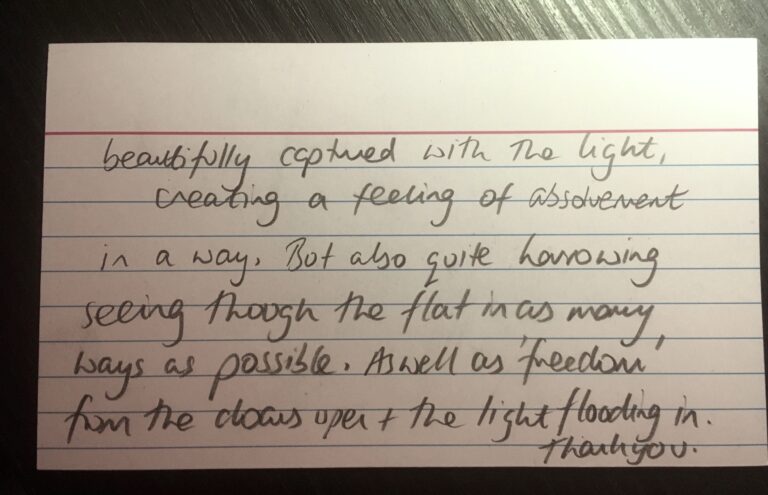 beautifully captured with the light,
creating a feeling of absolvement
in a way. But also quite harrowing
seeing though the flat in as many
ways as possible. Aswell as 'freedom'
from the doors open + the light flooding in.
Thankyou.